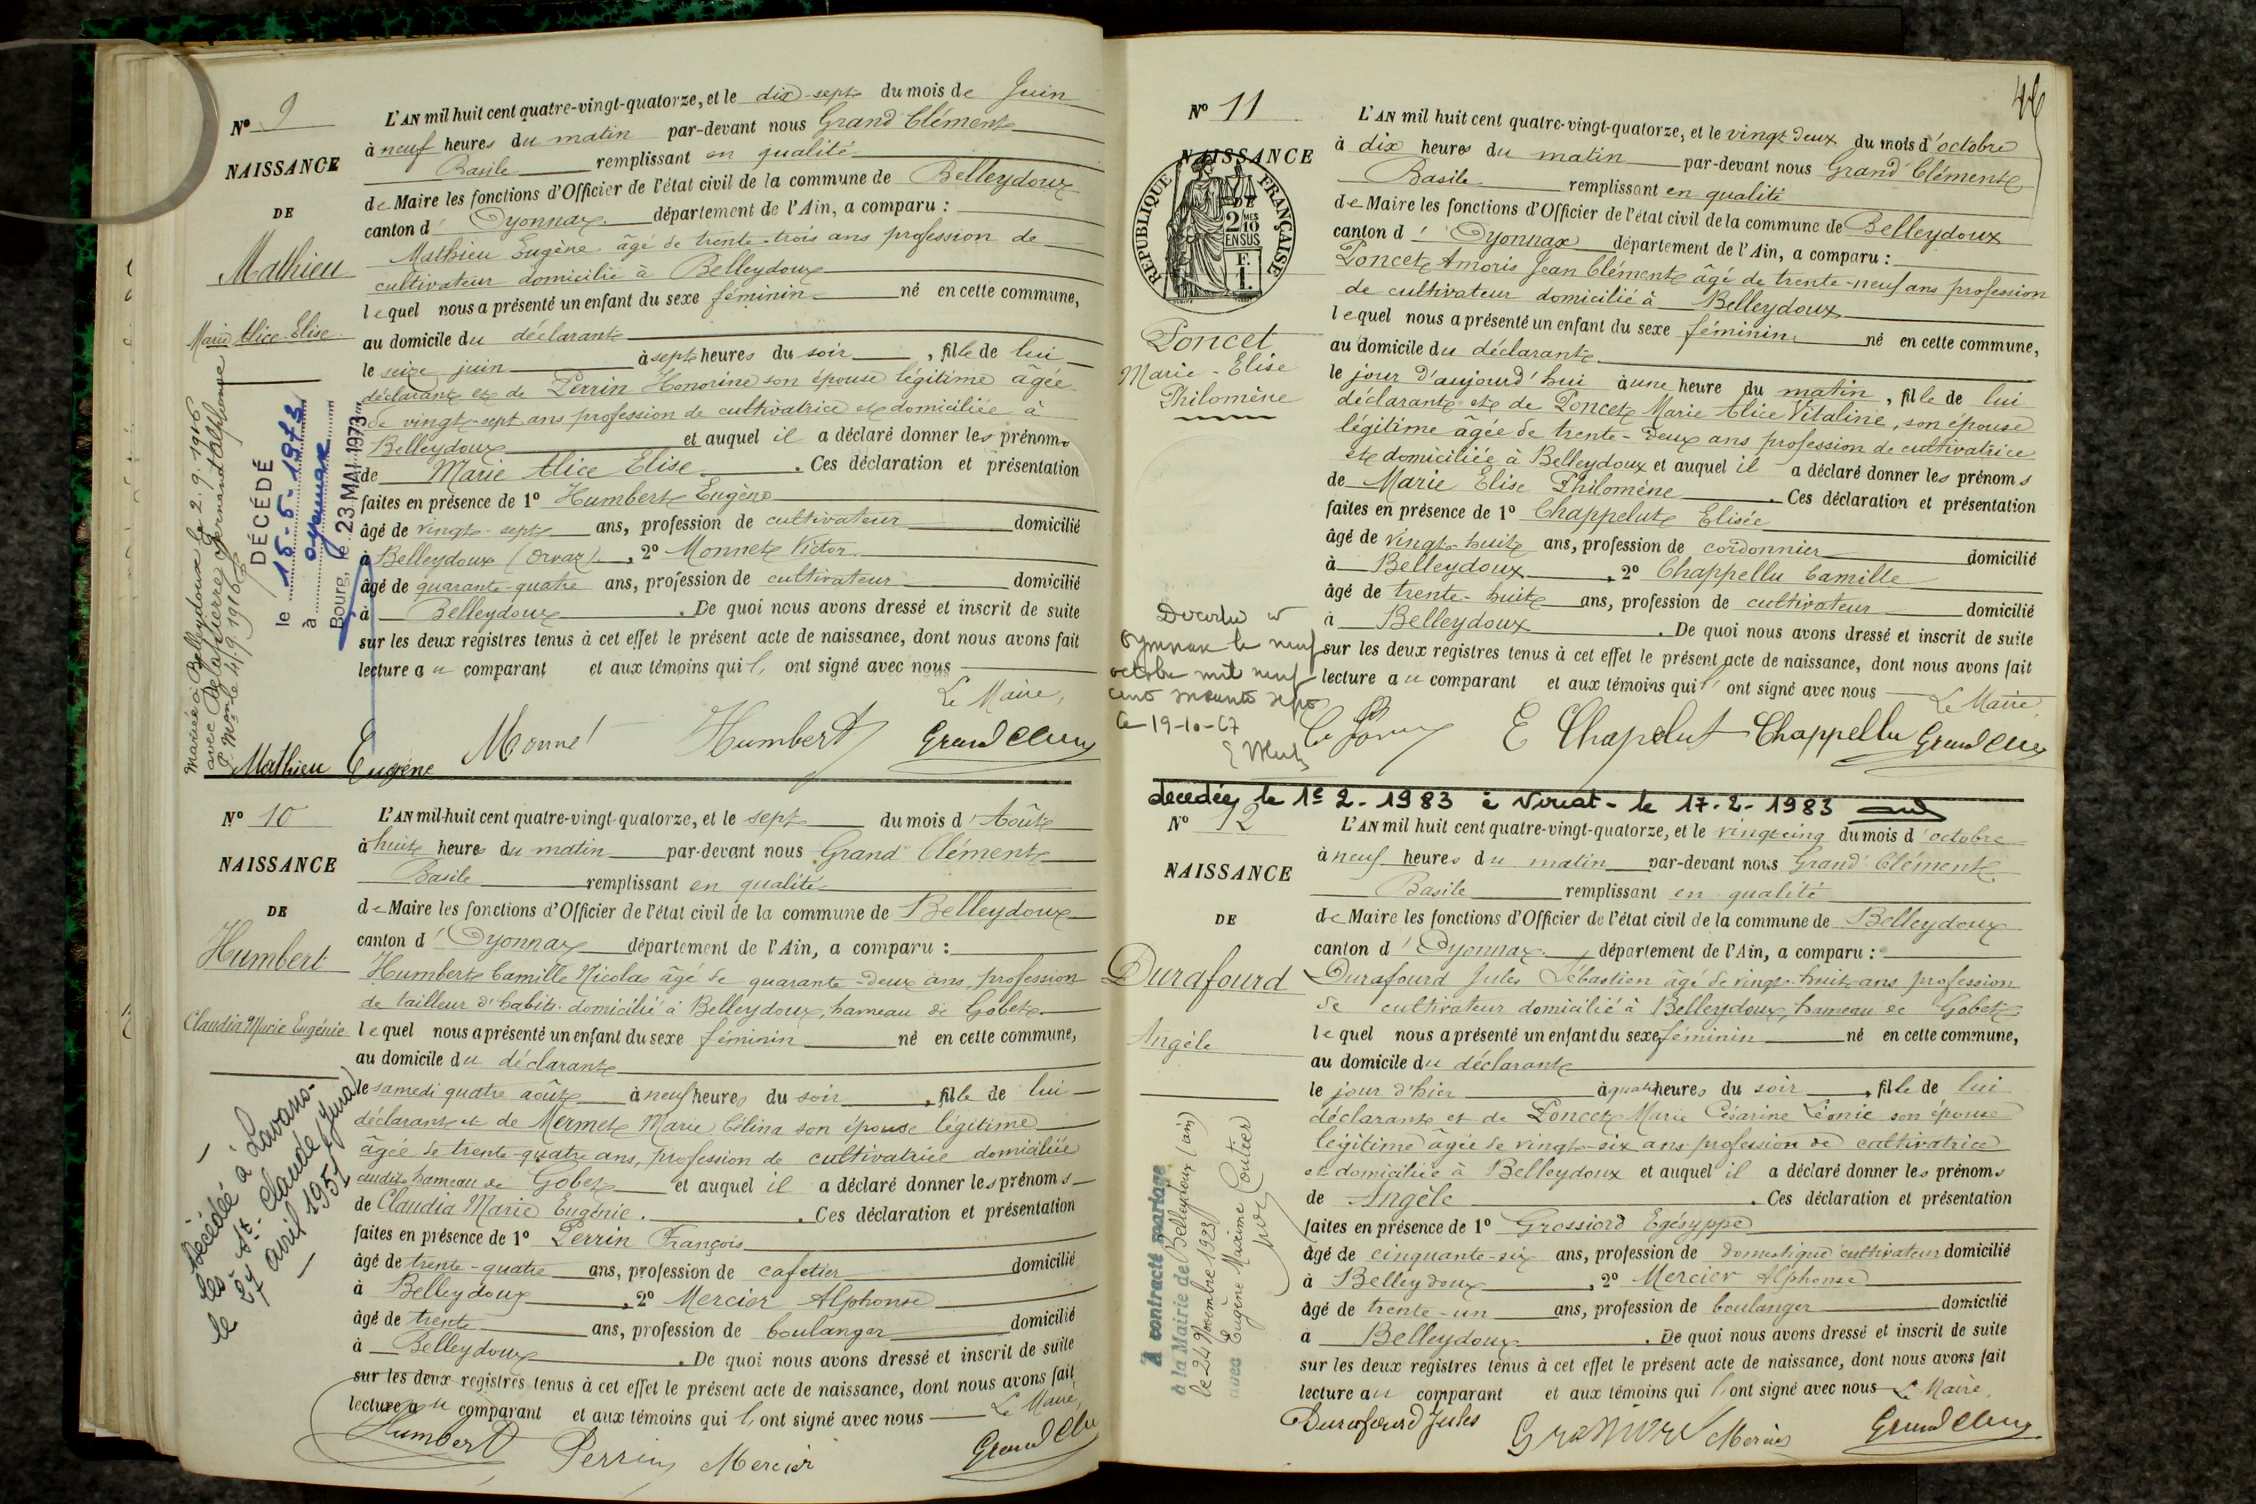 N° 9
NAISSANCE
DE
Mathieu
Marie Alice Elise
L'AN mil huit cent quatre-vingt-quatorze, et le dix-sept du mois de Juin
à neuf heures du matin par-devant nous Grand Clément
Basile remplissant en qualité
de Maire les fonctions d'Officier de l'état civil de la commune de Belleydoux
canton d'Oyonnax département de l'Ain, a comparu :
Mathieu Eugène âgé de trente-trois ans profession de
cultivateur domicilié à Belleydoux
lequel nous a présenté un enfant du sexe féminin né en cette commune,
au domicile du déclarant
le seize juin à sept heures du soir, fille de lui
déclarant et de Perrin Honorine son épouse légitime âgée
de vingt-sept ans profession de cultivatrice et domiciliée à
Belleydoux et auquel il a déclaré donner les prénoms
de Marie Alice Elise. Ces déclaration et présentation
faites en présence de 1° Humbert Eugène
âgé de vingt-sept ans, profession de cultivateur domicilié
à Belleydoux (Orvaz), 2° Monnet Victor
âgé de quarante-quatre ans, profession de cultivateur domicilié
à Belleydoux. De quoi nous avons dressé et inscrit de suite
sur les deux registres tenus à cet effet le présent acte de naissance, dont nous avons fait
lecture au comparant et aux témoins qui l'ont signé avec nous
Le Maire,
Mathieu Eugène Monnet Humbert Grand Clém
mariée à Belleydoux le 2.9.1916
avec Delapierre Fernand Alphonse
DÉCÉDÉ
le 15-5-1973
à oyonnax
Bourg, le 23 MAI 1973
N° 10
NAISSANCE
DE
Humbert
Claudia Marie Eugénie
L'AN mil-huit cent quatre-vingt-quatorze, et le sept du mois d'Août
à huit heures du matin par-devant nous Grand Clément
Basile remplissant en qualité
de Maire les fonctions d'Officier de l'état civil de la commune de Belleydoux
canton d'Oyonnax département de l'Ain, a comparu :
Humbert Camille Nicolas âgé de quarante-deux ans, profession
de tailleur d'habits domicilié à Belleydoux, hameau de Gobet
lequel nous a présenté un enfant du sexe féminin né en cette commune,
au domicile du déclarant
le samedi quatre août à neuf heures du soir, fille de lui
déclarant et de Mermet Marie Célina son épouse légitime
âgée de trente-quatre ans, profession de cultivatrice domiciliée
audit hameau de Gobet et auquel il a déclaré donner les prénoms
de Claudia Marie Eugénie. Ces déclaration et présentation
faites en présence de 1° Perrin François
âgé de trente-quatre ans, profession de cafetier domicilié
à Belleydoux, 2° Mercier Alphonse
âgé de trente ans, profession de boulanger domicilié
à Belleydoux. De quoi nous avons dressé et inscrit de suite
sur les deux registres tenus à cet effet le présent acte de naissance, dont nous avons fait
lecture au comparant et aux témoins qui l'ont signé avec nous
Le Maire,
Humbert Perrin Mercier Grand Clé
Décédée à Lavans-
lès St-Claude (Jura)
le 27 avril 1951
46
N° 11
NAISSANCE
DE
RÉPUBLIQUE FRANÇAISE
2/10 MES
EN SUS
F.
1.
Poncet
Marie-Elise
Philomène
L'AN mil huit cent quatre-vingt-quatorze, et le vingt deux du mois d'octobre
à dix heures du matin par-devant nous Grand Clément
Basile remplissant en qualité
de Maire les fonctions d'Officier de l'état civil de la commune de Belleydoux
canton d'Oyonnax département de l'Ain, a comparu :
Poncet Amoris Jean Clément âgé de trente-neuf ans profession
de cultivateur domicilié à Belleydoux
lequel nous a présenté un enfant du sexe féminin né en cette commune,
au domicile du déclarant
le jour d'aujourd'hui à une heure du matin, fille de lui
déclarant et de Poncet Marie Alice Vitaline, son épouse
légitime âgée de trente-deux ans profession de cultivatrice
et domiciliée à Belleydoux et auquel il a déclaré donner les prénoms
de Marie Elise Philomène. Ces déclaration et présentation
faites en présence de 1° Chappelut Elisée
âgé de vingt-huit ans, profession de cordonnier domicilié
à Belleydoux, 2° Chappellu Camille
âgé de trente-huit ans, profession de cultivateur domicilié
à Belleydoux. De quoi nous avons dressé et inscrit de suite
sur les deux registres tenus à cet effet le présent acte de naissance, dont nous avons fait
lecture au comparant et aux témoins qui l'ont signé avec nous
Le Maire
E Chapelut Chappellu Grand Clém
Décédée à
Oyonnax le neuf
octobre mil neuf
cent soixante sept
le 19-10-67
decedée le 1er 2-1983 à Viriat - le 17-2-1983
N° 12
NAISSANCE
DE
Durafourd
Angèle
L'AN mil huit cent quatre-vingt-quatorze, et le vingt cinq du mois d'octobre
à neuf heures du matin par-devant nous Grand Clément
Basile remplissant en qualité
de Maire les fonctions d'Officier de l'état civil de la commune de Belleydoux
canton d'Oyonnax, département de l'Ain, a comparu :
Durafourd Jules Sébastien âgé de vingt-huit ans profession
de cultivateur domicilié à Belleydoux, hameau de Gobet
lequel nous a présenté un enfant du sexe féminin né en cette commune,
au domicile du déclarant
le jour d'hier à quatre heures du soir, fille de lui
déclarant et de Poncet Marie Césarine Léonie son épouse
légitime âgée de vingt-six ans profession de cultivatrice
et domiciliée à Belleydoux et auquel il a déclaré donner les prénoms
de Angèle. Ces déclaration et présentation
faites en présence de 1° Grossiord Egésyppe
âgé de cinquante-six ans, profession de domestique cultivateur domicilié
à Belleydoux, 2° Mercier Alphonse
âgé de trente-un ans, profession de boulanger domicilié
a Belleydoux. De quoi nous avons dressé et inscrit de suite
sur les deux registres tenus à cet effet le présent acte de naissance, dont nous avons fait
lecture au comparant et aux témoins qui l'ont signé avec nous Le Maire,
Durafourd Jules Grossiord Mercier Grand Clém
A contracté mariage
à la Mairie de Belleydoux (ain)
le 24 Novembre 1923
avec Eugène Maxime Coutier